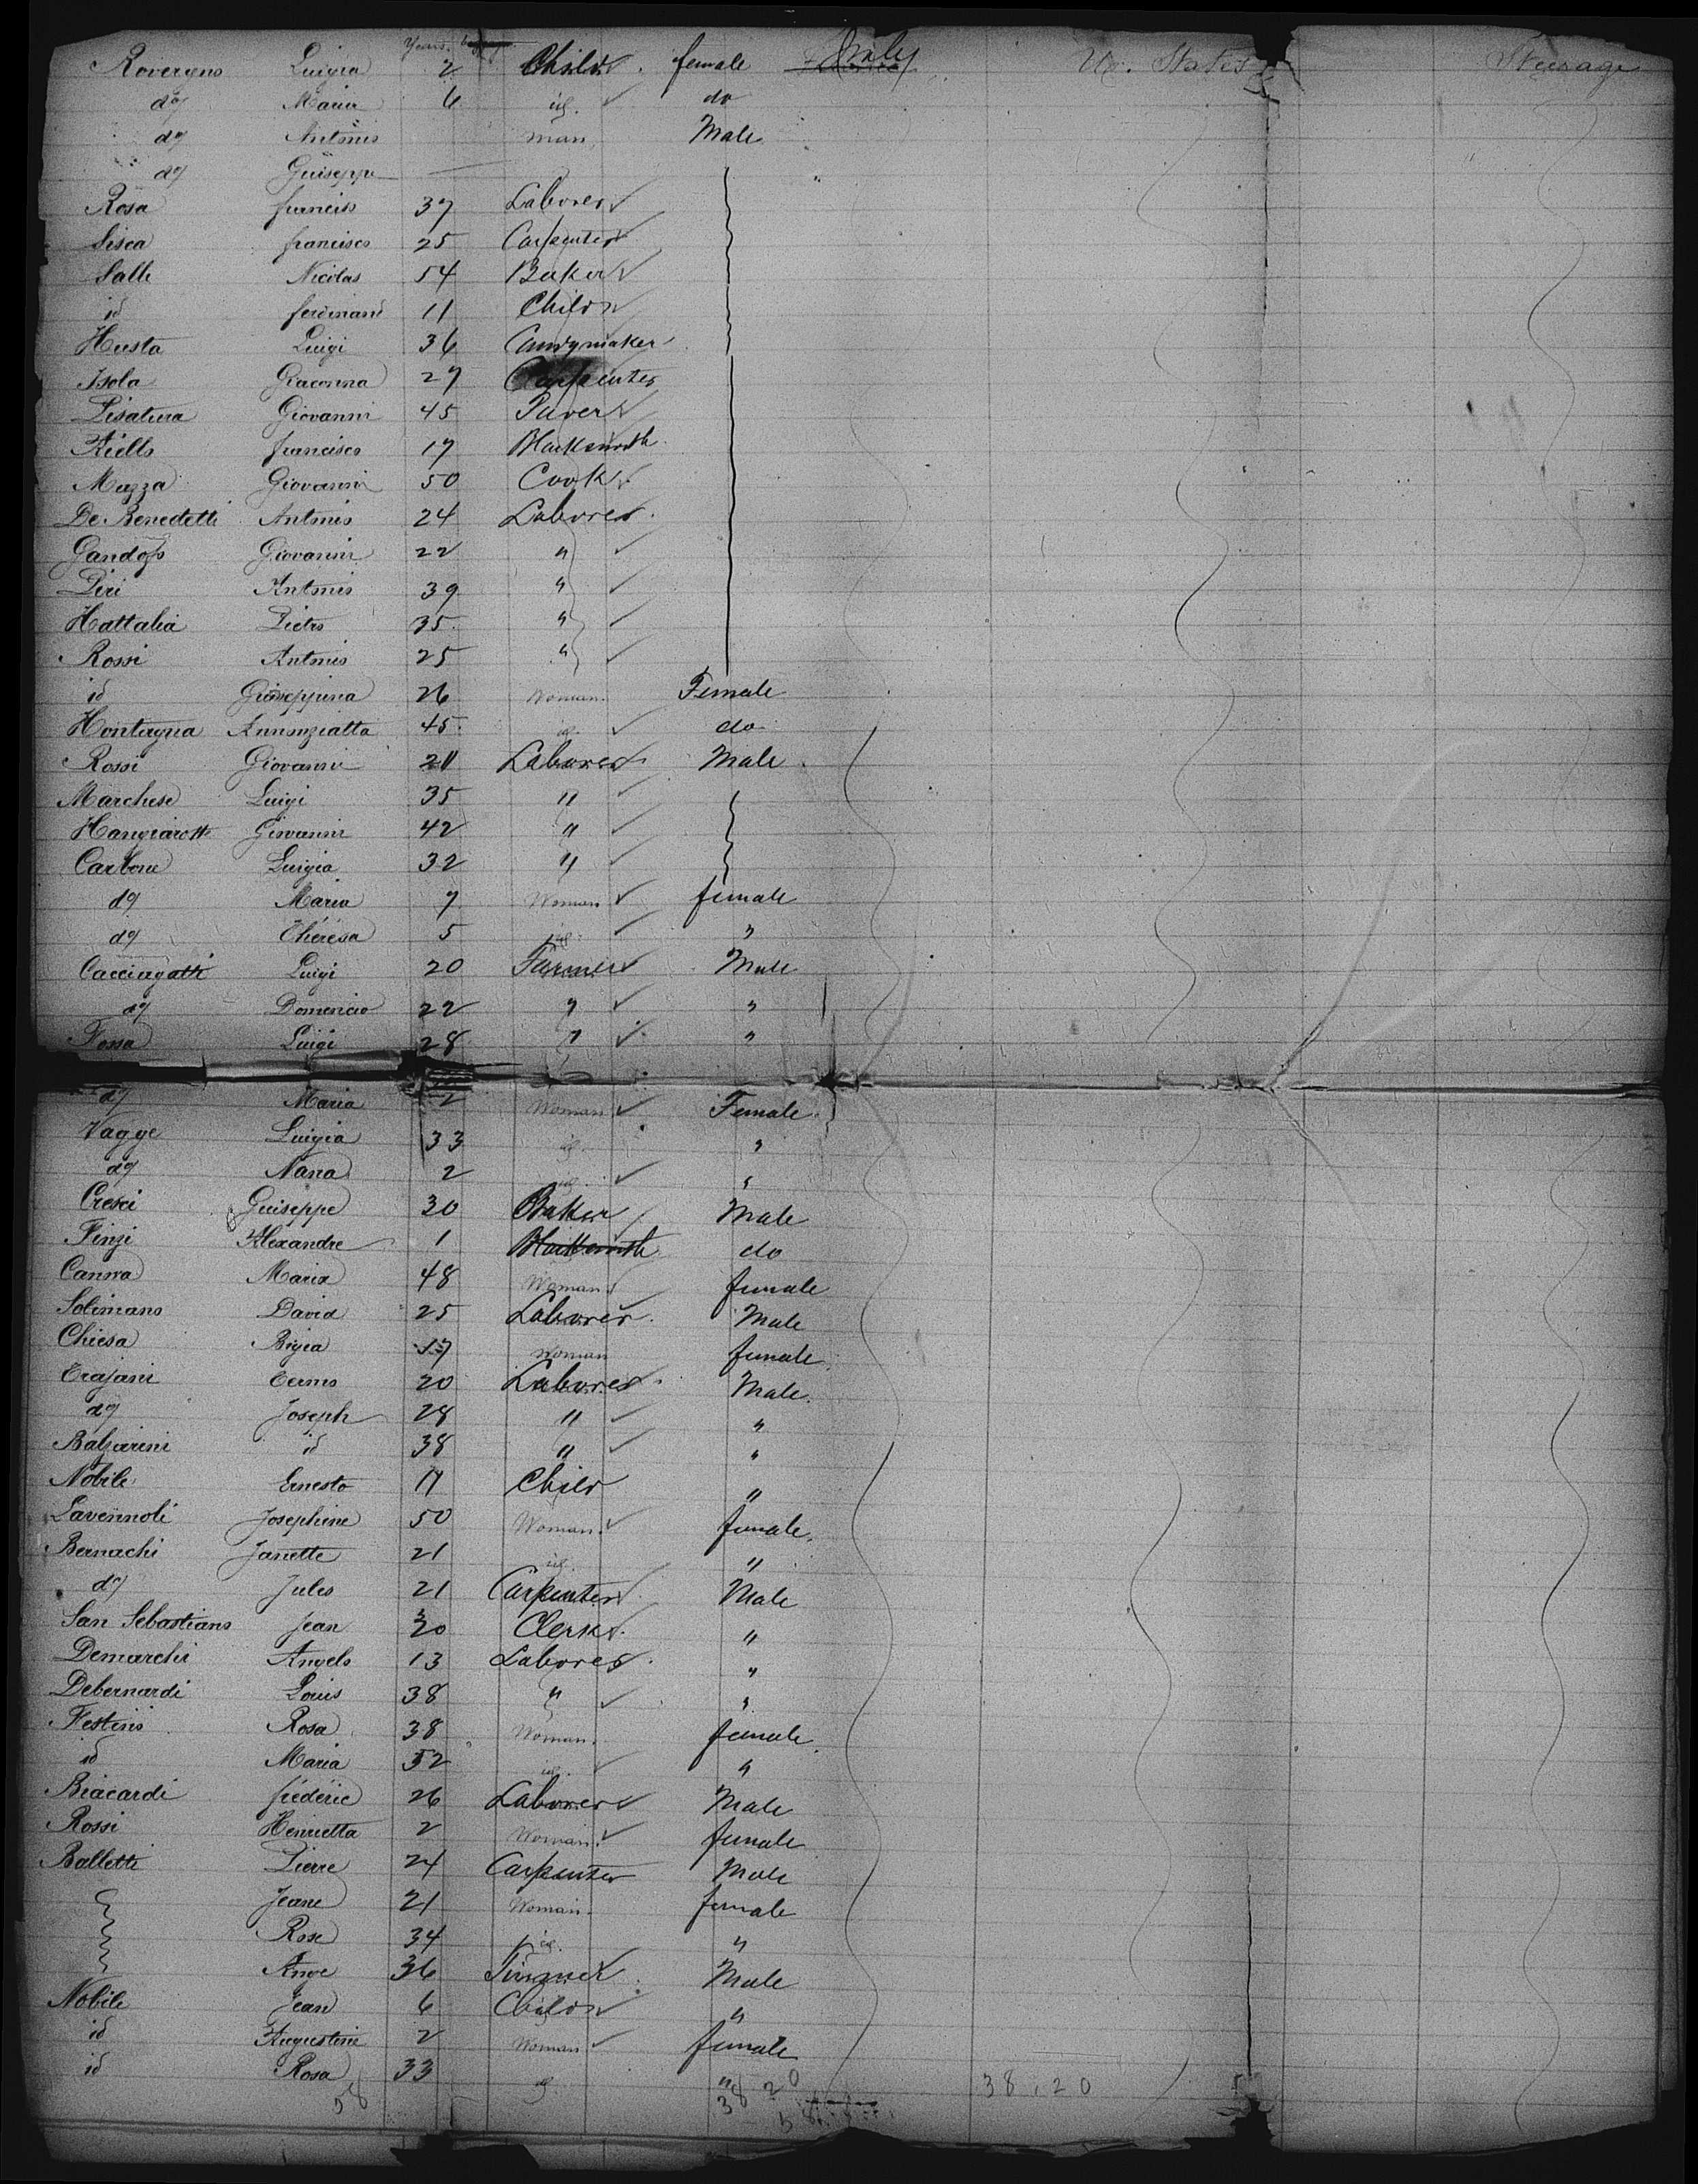 Years.
Roveryno Luigia 2 Child female Italy Un. States Steerage
do Maria 6 id. do
do Antonio man Male
do Guiseppe
Rosa francisco 37 Laborer
Sisca francisco 25 Carpenter
Salle Nicolas 54 Baker
id ferdinand 11 Child
Husta Luigi 36 Candymaker
Isola Giacoma 27 Carpenter
Pisatura Giovanni 45 Paver
Aiello francisco 17 Blacksmith
Mazza Giovanni 50 Cook
De Benedetti Antonio 24 Laborer
Gandofo Giovanni 22 "
Piri Antonio 39 "
Hattalia Pietro 35 "
Rossi Antonio 25 "
id Giuseppina 26 Woman. Female
Hontagna Annunziatta 45 id. do
Rossi Giovanni 21 Laborer Male
Marchese Luigi 35 "
Hangiarotti Giovanni 42 "
Carbone Luigia 32 "
do Maria 7 Woman female
do Thérèsa 5 id. "
Cacciagatti Luigi 20 Farmer Male
do Domenicio 22 " "
Fossa Luigi 28 " "
do Maria 2 Woman Female
Vagge Luigia 33 id. "
do Nana 2 id. "
Cresci Guiseppe 30 Baker Male
Finzi Alexandre 1 Blacksmith do
Canova Maria 48 Woman female
Solimano David 25 Laborer Male
Chiesa Bigia 17 Woman female
Trajani Termo 20 Laborer Male
do Joseph 28 " "
Balzarini id 38 " "
Nobile Ernesto 11 Child "
Lavennoli Josephine 50 Woman. female
Bernachi Janette 21 id. "
do Jules 21 Carpenter Male
San Sebastiano Jean 30 Clerk "
Demarchi Angelo 13 Laborer "
Debernardi Louis 38 " "
Festino Rosa 38 Woman. female
id Maria 52 id. "
Biacardi frédéric 26 Laborer Male
Rossi Henrietta 2 Woman. female
Balletti Pierre 24 Carpenter Male
Jeane 21 Woman. female
Rose 34 id. "
Ange 36 Male
Nobile Jean 6 Child "
id Augustine 2 Woman female
id Rosa 33 id. "
58 38 20 38.20
58